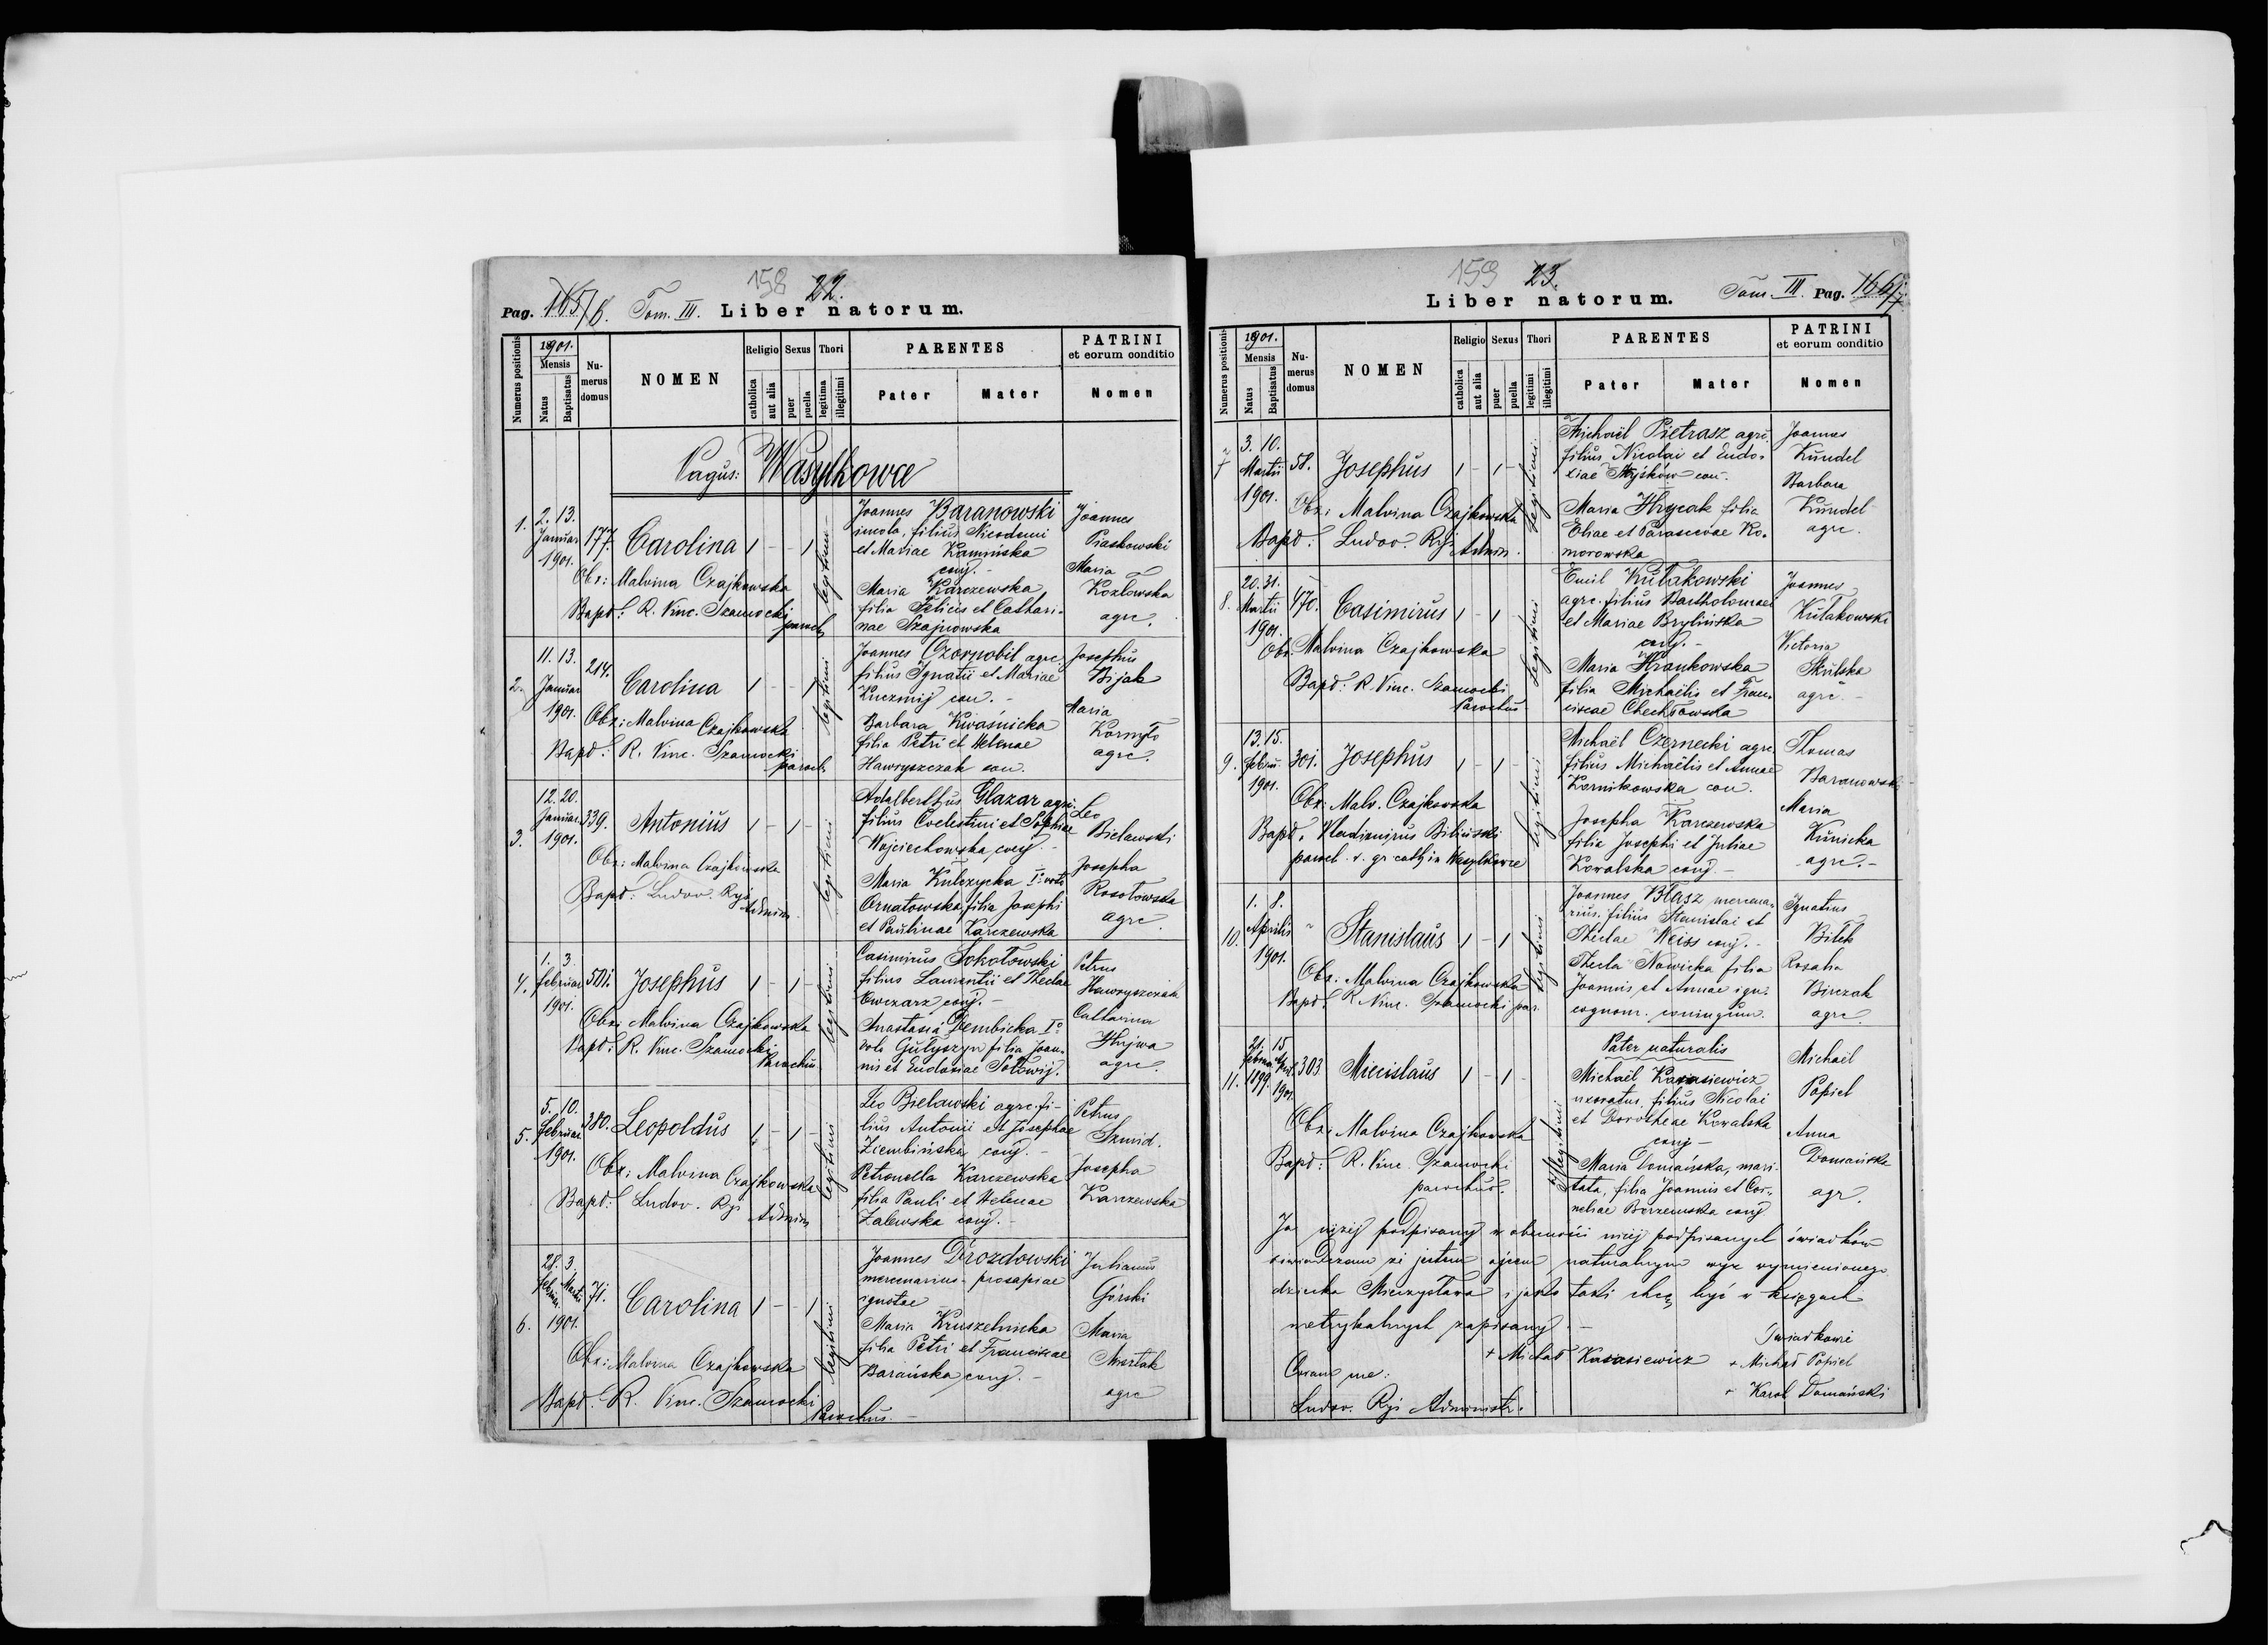 158 22.
Pag. 165/6. Tom. III. Liber natorum.
Numerus positionis
1901.
Mensis
Natus
Baptisatus
Nu-
merus
domus
NOMEN
Religio
catholica
aut alia
Sexus
puer
puella
Thori
legitima
illegitimi
PARENTES
Pater
Mater
PATRINI
et eorum conditio
Nomen
Pagus: Wasylkowce
1. 2. 13. Januar 1901. 177. Carolina 1 - - 1 legitimi
Obs: Malvina Czajkowska
Bapt: R. Vinc. Szamocki paroch
Joannes Baranowski
incola, filius Nicodemi
et Mariae Kamińska
conj. -
Maria Karczewska
filia Felicis et Cathari-
nae Szajnowska
Joannes
Piaskowski
Maria
Kozłowska
agre.
2. 11. 13. Januar 1901. 214. Carolina 1 - - 1 legitimi
Obs: Malvina Czajkowska
Bapt: R. Vinc. Szamocki paroch
Joannes Czornobil agre.
filius Ignatii et Mariae
con. -
Barbara Kwaśnicka
filia Petri et Helenae
Hawryszczak con.
Josephus
Bijak
Maria
Kornyło
agre.
3. 12. 20. Januar. 1901. 339. Antonius 1 - 1 - legitimi
Obs: Malvina Czajkowska
Bapt: Ludov. Ryś Admin.
Adalberthus Glazar agre.
filius Coelestini et Sophiae
Wojciechowska conj. -
Maria Kulczycka Iº voto
Ornatowska, filia Josephi
et Paulinae Karczewska
Leo
Bielawski
Josepha
Rosołowska
agre.
4. 1. 3. Februar 1901. 501. Josephus 1 - 1 - legitimi
Obs: Malvina Czajkowska
Bapt: R. Vinc. Szamocki Parochus
Casimirus Sokołowski
filius Laurentii et Theclae
Owczarz conj. -
Anastasia Dembicka Iº
voto Gułyszyn filia Joan-
nis et Eudoxiae Sołowij.
Petrus
Hawryszczak
Catharina
Hnjwa
agre.
5. 5. 10. Februar. 1901. 380. Leopoldus 1 - 1 - legitimi
Obs: Malvina Czajkowska
Bapt: Ludov. Ryś Admin
Leo Bielawski agre. fi-
lius Antonii et Josephae
Ziembińska conj. -
Petronella Karczewska
filia Pauli et Helenae
Zalewska conj. -
Petrus
Szmid.
Josepha
Karczewska
6. 28. Febr. 3 Martii 1901. 71. Carolina 1 - - 1 legitimi
Obs: Malvina Czajkowska
Bapt: R. Vinc. Szamocki Parochus. -
Joannes Drozdowski
mercenarius - prosapiae
ignotae
Maria Kruszelnicka
filia Petri et Franciscae
Barańska conj. -
Julianus
Górski
Maria
agre
159 23.
Liber natorum. Tom. III. Pag. 166/7
Numerus positionis
1901.
Mensis
Natus
Baptisatus
Nu-
merus
domus
NOMEN
Religio
catholica
aut alia
Sexus
puer
puella
Thori
legitimi
illegitimi
PARENTES
Pater
Mater
PATRINI
et eorum conditio
Nomen
7 3. 10. Martii 1901. 58. Josephus 1 - 1 - legitimi
Obs: Malvina Czajkowska
Bapt: Ludov. Ryś Admin.
Michaël Pietrasz agre.
filius Nicolai et Eudo-
xiae con. -
Maria Hrycak filia
Eliae et Parascevae Ko-
morowska
Joannes
Kundel
Barbara
Kundel
agre.
8. 20. 31. Martii 1901. 470. Casimirus 1 - 1 legitimi
Obs. Malvina Czajkowska
Bapt: R. Vinc. Szamocki Parochus
Emil Kułakowski
agre. filius Bartholomaei
et Mariae Brylińska
conj. -
Maria Hrankowska
filia Michaëlis et Fran-
ciscae Chechłowska
Joannes
Kułakowski
Victoria
Skulska
agre. -
9. 13. 15. Febru. 1901. 301. Josephus 1 - 1 - legitimi
Obs: Malv. Czajkowska
Bapt. Vladimirus Biliński
paroch. r. gr. cath. in Wasylkowce
Michaël Czernecki agre.
filius Michaëlis et Annae
Kornikowska con.
Josepha Karczewska
filia Josephi et Juliae
Kowalska conj. -
Thomas
Baranowski
Maria
Kunicka
agre. -
10. 1. 8. Aprilis 1901. " Stanislaus 1 - 1 legitimi
Obs. Malvina Czajkowska
Bapt: R. Vinc. Szamocki par.
Joannes Błasz mercena-
rius, filius Stanislai et
Theclae Weiss conj. -
Thecla Nowicka filia
Joannis et Annae ign.
cognom. coniugum.
Ignatius
Bilek
Rosalia
Birczak
agre.
11. 21. Februar 1899. 15 1901. 303 Miecislaus 1 - 1 - illegitimi
Obs: Malvina Czajkowska
Bapt: R. Vinc. Szamocki
parochus.
Pater naturalis
Michaël Karasiewicz
uxoratus, filius Nicolai
et Dorotheae Kowalska
conj -
Maria Domańska, mari-
tata, filia Joannis et Cor-
neliae Borzemska conj
Michaël
Popiel
Anna
Domańska
agr.
Ja niżej podpisany w obecności niżej podpisanych świadków
oświadczam że jestem ojcem naturalnym wyż wymienionego
dziecka Mieczysława i jako taki chcę być w księgach
metrykalnych zapisany. -
Świadkowie
+ Michał Karasiewicz + Michał Popiel
Coram me: + Karol Domański
Ludov. Ryś Administr.